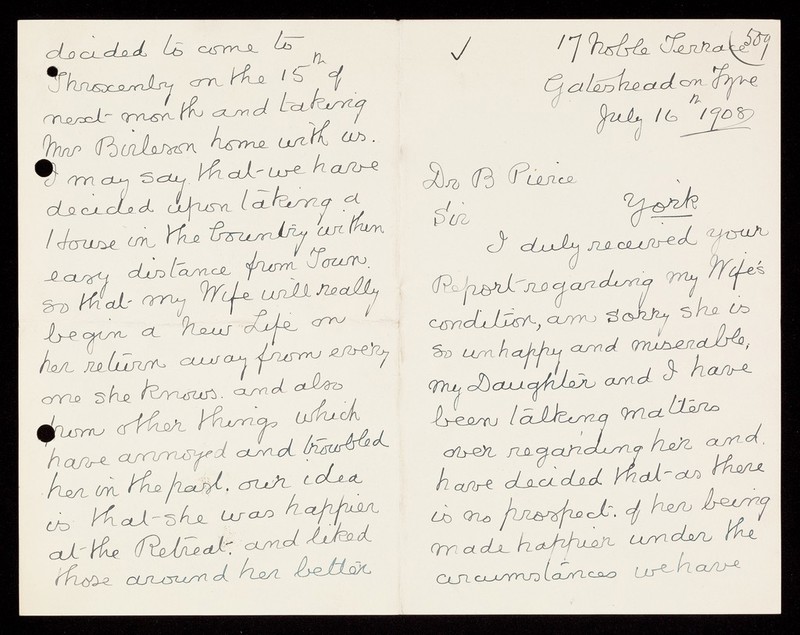 17 Noble Terrace 509
Gateshead on Tyne
July 16th 1908
Dr B Pierce
York
Sir
I duly received your
Report regarding my Wife's
condition, am sorry she is
so unhappy and miserable,
my Daughter and I have
been talking matters
over regarding her and
have decided that as there
is no prospect of her being
made happier under the
circumstances we have
decided to come to
Throxenby on the 15th of
next month and taking
Mrs Birleson home with us.
I may say that we have
decided upon taking a
House in the Country within
easy distance from Town.
so that my Wife will really
begin a New Life on
her return away from every
one she knows. and also
from other things which
have annoyed and trowbled
her in the past. our idea
is that she was happier
at the Retreat. and liked
those around her better